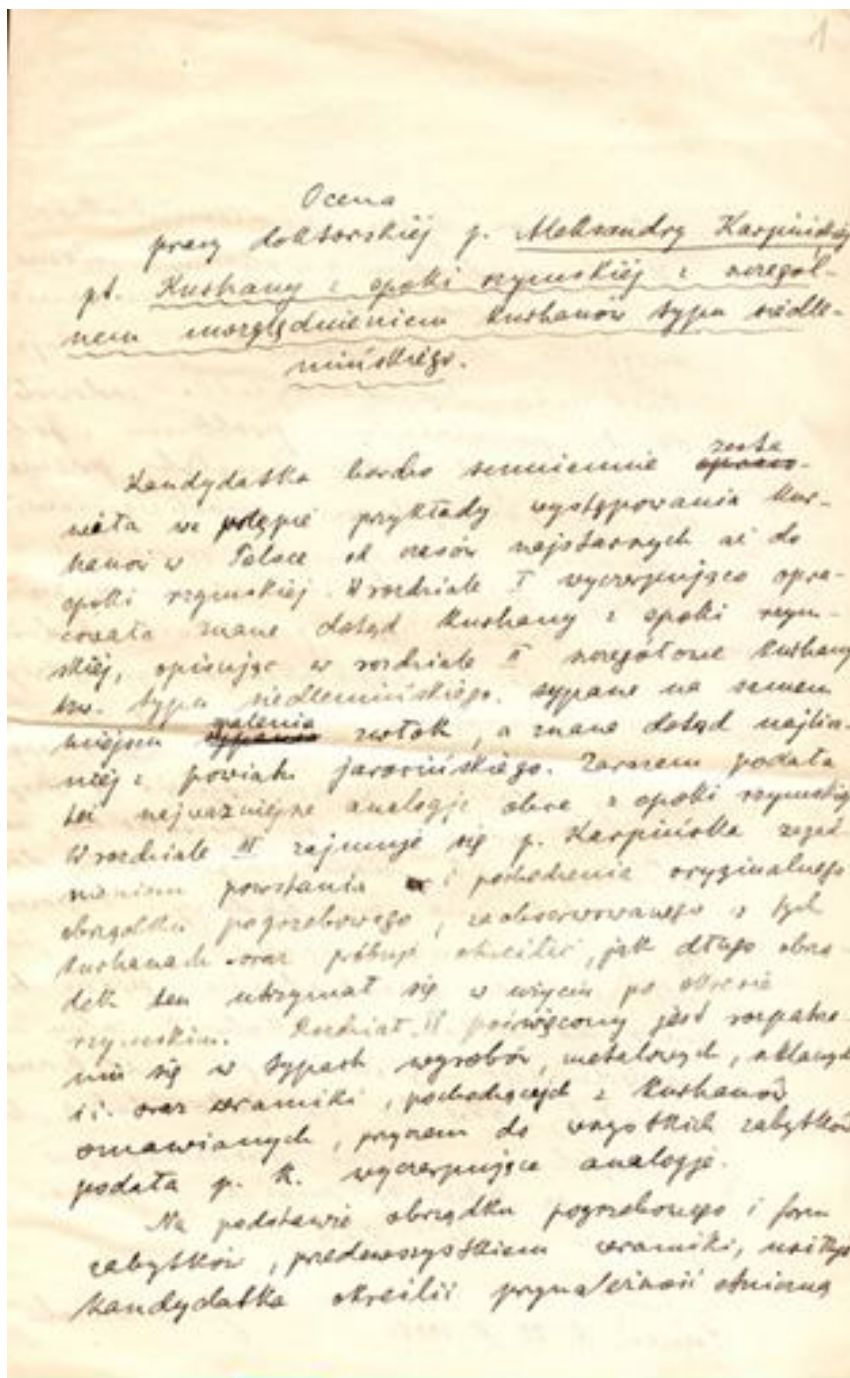 1
Ocena
pracy doktorskiej p. Aleksandry Karpińskiej
pt. Kurhany z epoki rzymskiej z szczegól-
nem uwzględnieniem kurhanów typu siedle-
mińskiego.
Kandydatka bardzo sumiennie zesta
wiała we wstępie przykłady występowania kur-
hanów w Polsce od czasów najstarszych aż do
epoki rzymskiej. W rozdziale I wyczerpująco opra-
cowała znane dotąd kurhany z epoki rzym-
skiej, opisując w rozdziale II szczegółowo kurhany
tzw. typu siedlemińskiego, sypane na samem
miejscu palenia zwłok, a znane dotąd najlicz-
niej z powiatu jarocińskiego. Zarazem podała
też najważniejsze analogje obce z epoki rzymskiej
W rozdziale III zajmuje się p. Karpińska zagad-
nieniem powstania i pochodzenia oryginalnego
obrządku pogrzebowego, zaobserwowanego w tych
kurhanach oraz próbuje określić, jak długo obrzą-
dek ten utrzymał się w użyciu po okresie
rzymskim. Rozdział IV poświęcony jest rozpatrze-
niu się w typach wyrobów metalowych, szklanych
i i. oraz ceramiki, pochodzących z kurhanów
omawianych, przyczem do wszystkich zabytków
podała p. K. wyczerpujące analogje.
Na podstawie obrządku pogrzebowego i form
zabytków, przedewszystkiem ceramiki,
kandydatka określić przynależność etniczną